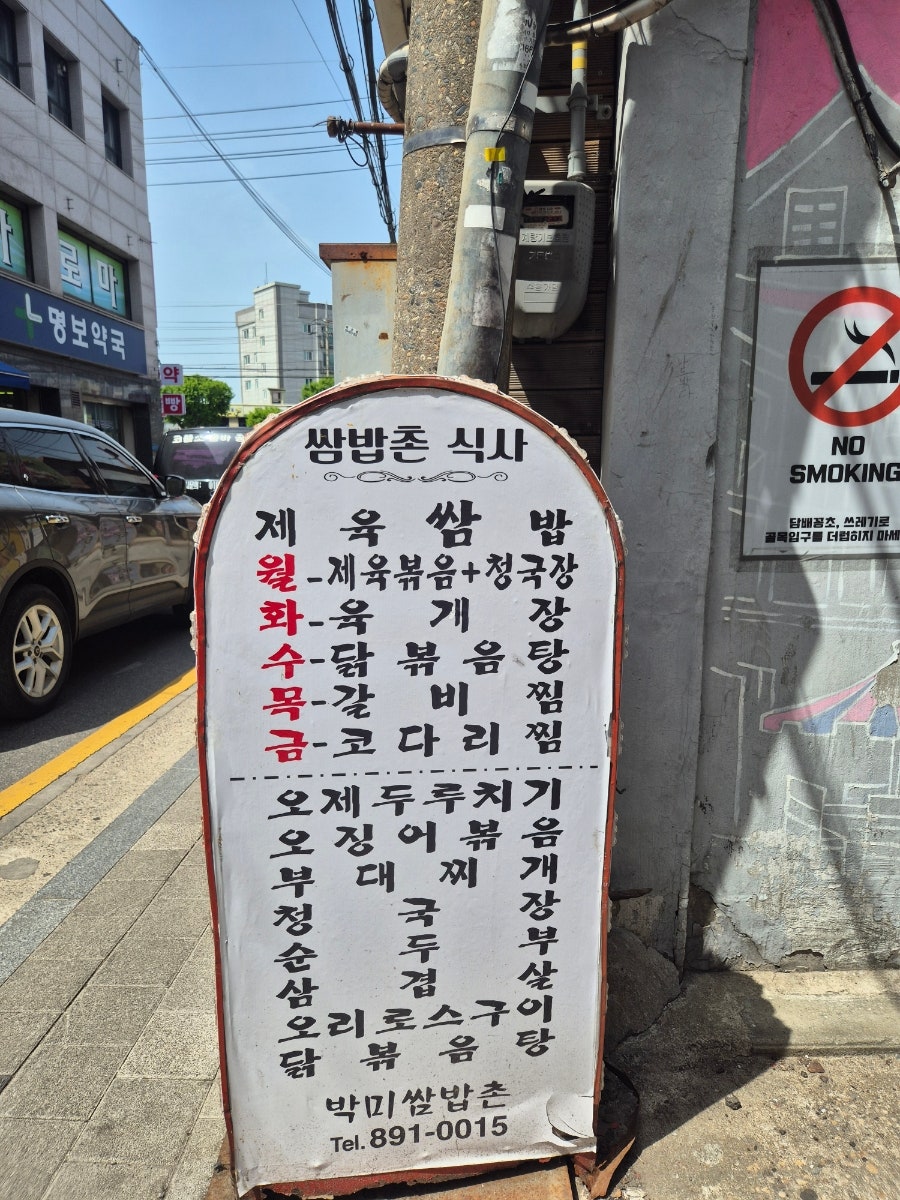 로마
명보약국
약
빵
쌈밥촌 식사
제육쌈밥
월-제육볶음+청국장
화-육개장
수-닭볶음탕
목-갈비찜
금-코다리찜
오제두루치기
오징어볶음
부대찌개
청국장
순두부
삼겹살
오리로스구이
닭볶음탕
박미쌈밥촌
Tel. 891-0015
NO
SMOKING
담배꽁초, 쓰레기로
골목입구를 더럽히지 마세